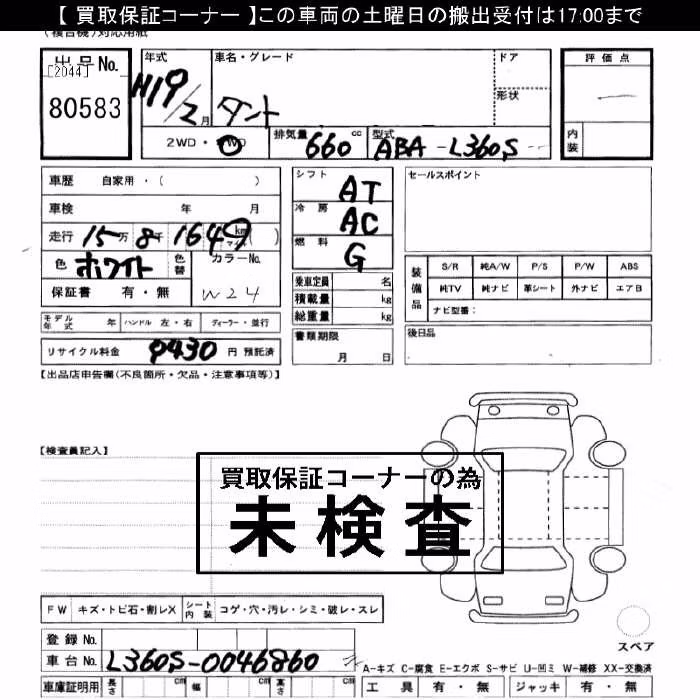 【 買取保証コーナー 】この車両の土曜日の搬出受付は17:00まで
(複合機)対応用紙
出品No. 年式 車名・グレード ドア 評価点
[2044] H19/2月 タント 形状 —
80583 2WD・4WD 排気量 660 cc 型式 ABA-L360S 内装
車歴 自家用・( ) シフト AT セールスポイント
車検 年 月 冷房 AC
走行 15万8千1649 km マイル ( ) 燃料 G
色 ホワイト 色替 カラーNo. 乗車定員 名 装備品 S/R 純A/W P/S P/W ABS
保証書 有・無 W24 積載量 kg 純TV 純ナビ 革シート 外ナビ エアB
総重量 kg ナビ型番:
モデル年式 年 ハンドル 左・右 ディーラー・並行 書類期限 後日品
リサイクル料金 9430 円 預託済 月 日
【出品店申告欄(不良箇所・欠品・注意事項等)】
【検査員記入】
買取保証コーナーの為
未検査
FW キズ・トビ石・割レX シート内装 コゲ・穴・汚レ・シミ・破レ・スレ
登録 No. スペア
車台 No. L360S-0046860 A-キズ C-腐食 E-エクボ S-サビ U-凹ミ W-補修 XX-交換済
車庫証明用 長さ cm 幅 cm 高さ cm 工具 有・無 ジャッキ 有・無